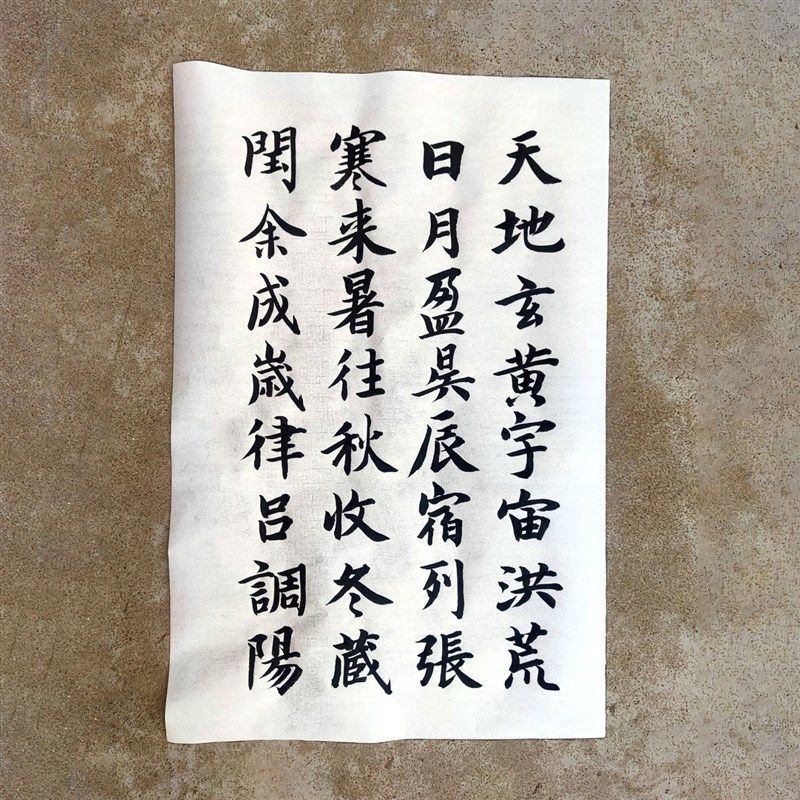 天地玄黄宇宙洪荒
日月盈昃辰宿列張
寒来暑往秋收冬蔵
閏余成歳律呂調陽